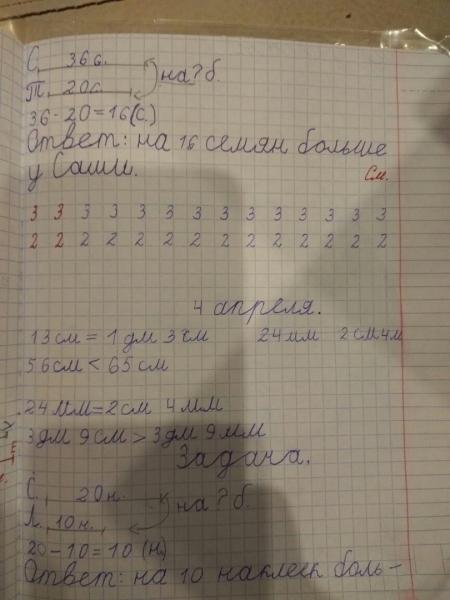 С. 36 с. на ? б.
Т. 20 с.
36-20=16(с.)
Ответ: на 16 семян больше
у Саши.
См.
3 3 3 3 3 3 3 3 3 3 3 3 3
2 2 2 2 2 2 2 2 2 2 2 2 2
4 апреля.
13 см = 1 дм 3 см 24 мм 2 см 4 м
56 см < 65 см
24 мм = 2 см 4 мм
3 дм 9 см > 3 дм 9 мм
Задача.
С. 20 н. на ? б.
Л. 10 н.
20-10=10 (н.)
Ответ: на 10 наклеек боль-